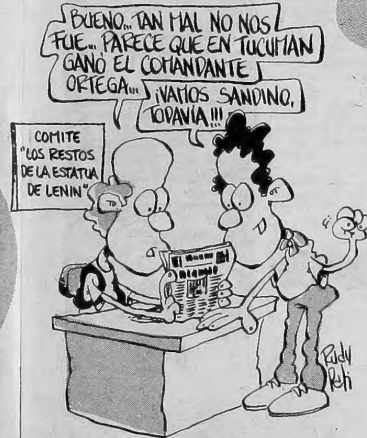 BUENO... TAN MAL NO NOS
FUE... PARECE QUE EN TUCUMAN
GANO EL COMANDANTE
ORTEGA...
¡VAMOS SANDINO,
TODAVIA!!!
COMITE
"LOS RESTOS
DE LA ESTATUA
DE LENIN"
Rudy